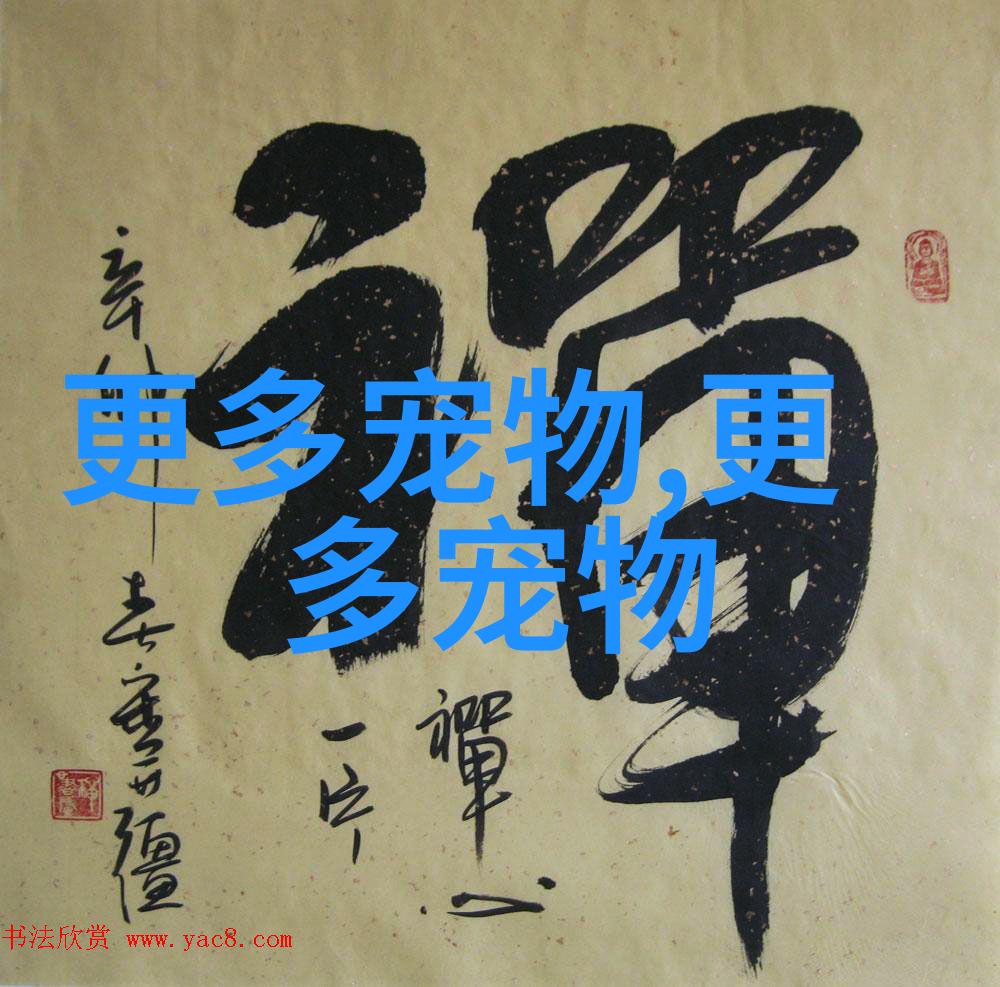 禪
禪心
一片
辛卯
春
更多宠物,更
多宠物
书法欣赏 www.yac8.com